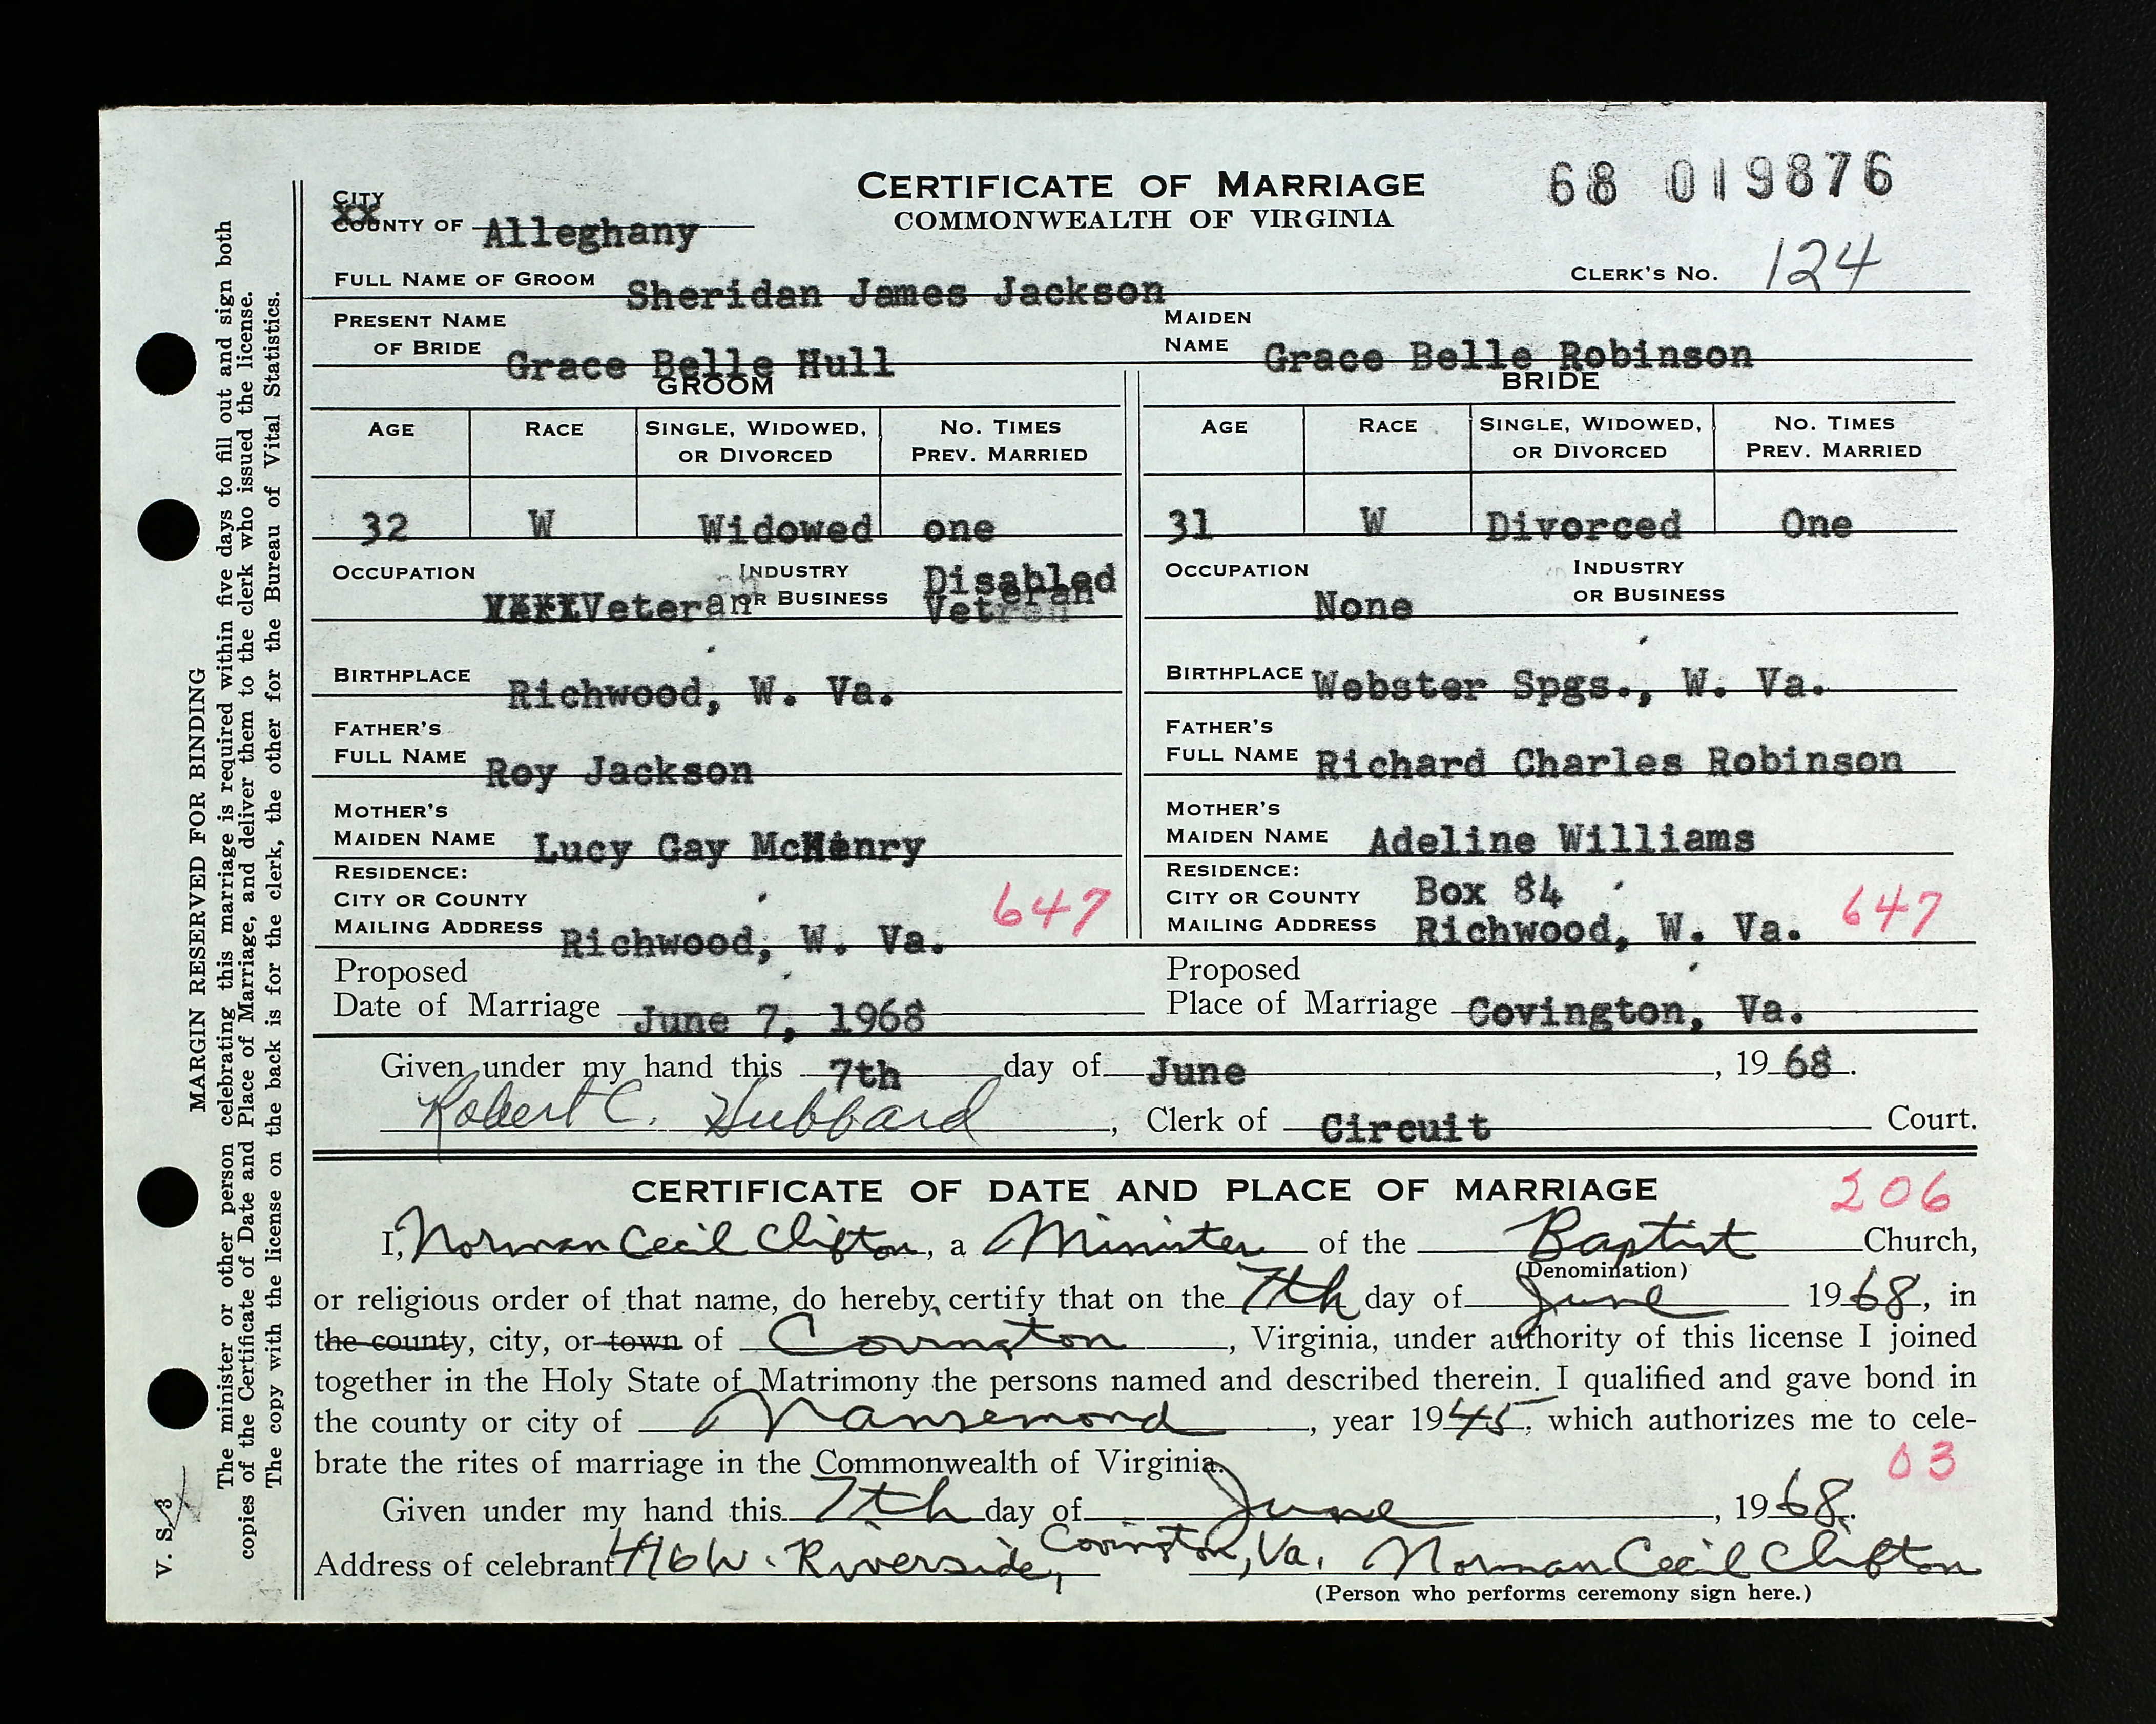 CERTIFICATE OF MARRIAGE
COMMONWEALTH OF VIRGINIA
68 019876
CITY
COUNTY OF Alleghany
CLERK'S NO. 124
FULL NAME OF GROOM Sheridan James Jackson
PRESENT NAME OF BRIDE Grace Belle Hull
MAIDEN NAME Grace Belle Robinson
GROOM
BRIDE
AGE RACE SINGLE, WIDOWED, OR DIVORCED NO. TIMES PREV. MARRIED
AGE RACE SINGLE, WIDOWED, OR DIVORCED NO. TIMES PREV. MARRIED
32 W Widowed one
31 W Divorced One
OCCUPATION Veteran INDUSTRY OR BUSINESS Disabled Veteran
OCCUPATION None INDUSTRY OR BUSINESS
BIRTHPLACE Richwood, W. Va.
BIRTHPLACE Webster Spgs., W. Va.
FATHER'S FULL NAME Roy Jackson
FATHER'S FULL NAME Richard Charles Robinson
MOTHER'S MAIDEN NAME Lucy Gay McHenry
MOTHER'S MAIDEN NAME Adeline Williams
RESIDENCE: CITY OR COUNTY MAILING ADDRESS Richwood, W. Va. 647
RESIDENCE: CITY OR COUNTY MAILING ADDRESS Box 84 Richwood, W. Va. 647
Proposed Date of Marriage June 7, 1968
Proposed Place of Marriage Covington, Va.
Given under my hand this 7th day of June, 1968.
Robert C. Hubbard, Clerk of Circuit Court.
CERTIFICATE OF DATE AND PLACE OF MARRIAGE 206
I, Norman Cecil Clifton, a Minister of the Baptist Church,
(Denomination)
or religious order of that name, do hereby certify that on the 7th day of June 1968, in
the county, city, or town of Covington, Virginia, under authority of this license I joined
together in the Holy State of Matrimony the persons named and described therein. I qualified and gave bond in
the county or city of Nansemond, year 1945, which authorizes me to cele-
brate the rites of marriage in the Commonwealth of Virginia.
03
Given under my hand this 7th day of June, 1968.
Address of celebrant 416 W. Riverside, Covington, Va. Norman Cecil Clifton
(Person who performs ceremony sign here.)
MARGIN RESERVED FOR BINDING
The minister or other person celebrating this marriage is required within five days to fill out and sign both
copies of the Certificate of Date and Place of Marriage, and deliver them to the clerk who issued the license.
The copy with the license on the back is for the clerk, the other for the Bureau of Vital Statistics.
V. S. 3